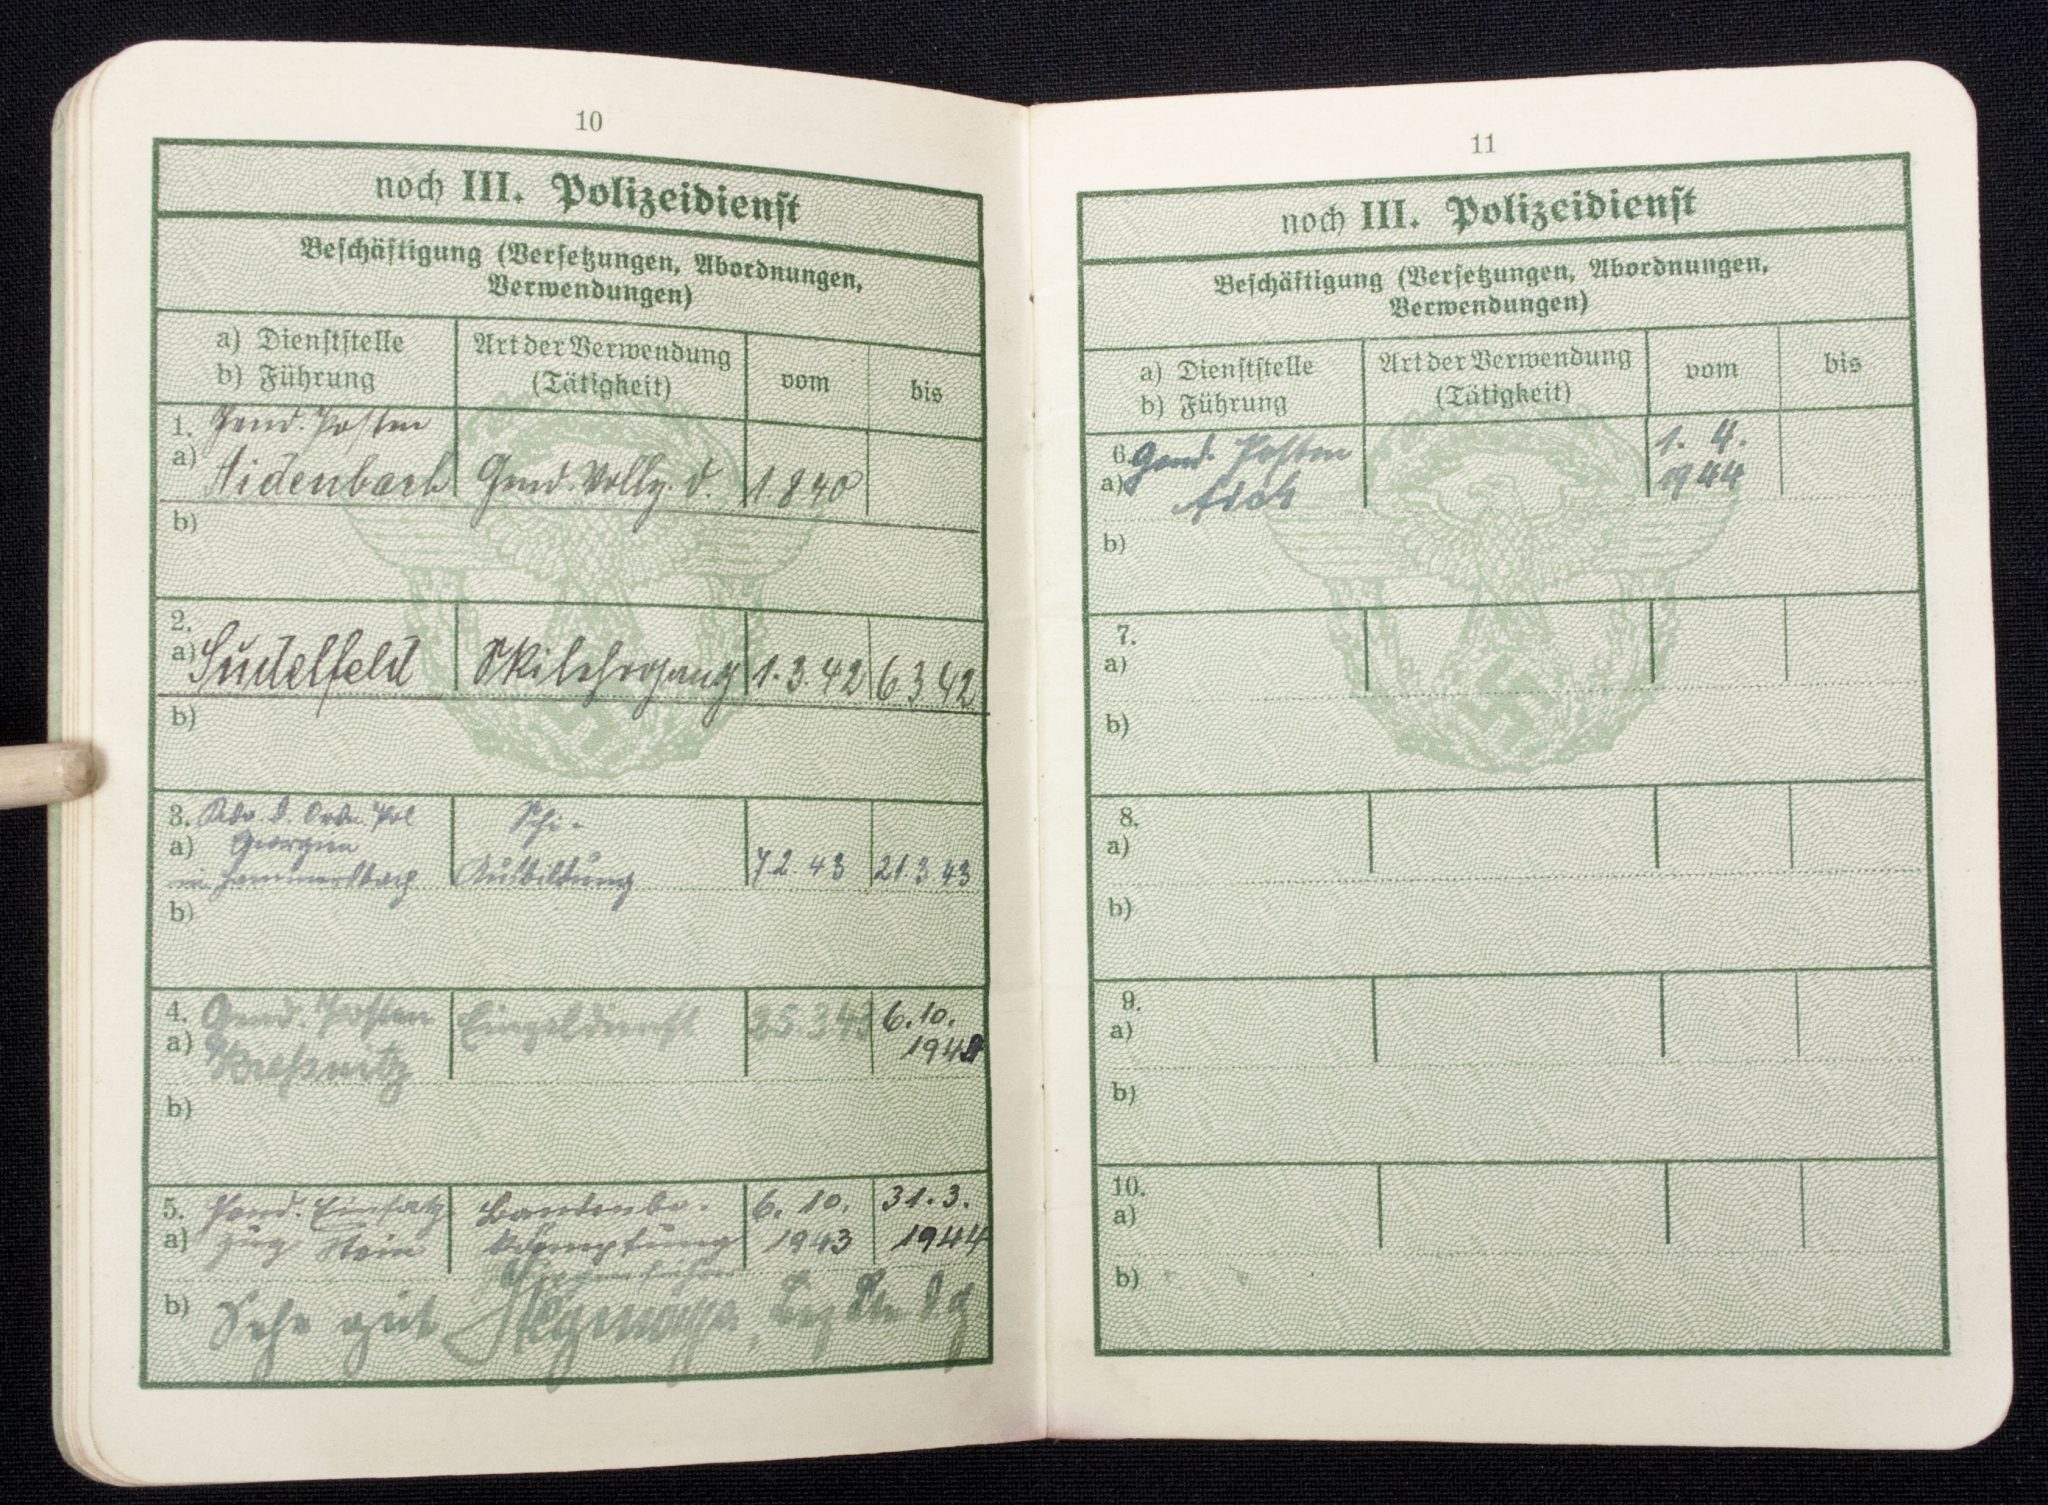 10
noch III. Polizeidienst
Beschäftigung (Versetzungen, Abordnungen,
Verwendungen)
a) Dienststelle
b) Führung
Art der Verwendung
(Tätigkeit)
vom
bis
1.
a)
Gend. Posten
Aidenbach
Gend. Vollz. d.
1 8 40
b)
2.
a)
Sudelfeld
Skilehrgang
1.3.42
6 3 42
b)
3.
a)
d. Ordn. Pol
Schi-
Ausbildung
7 2 43
21.3 43
b)
4.
a)
Gend. Posten
Einzeldienst
25.3 43
6.10.
b)
5.
a)
Gend. Einsatz
Zug Stein
Bandenbe-
kämpfung
6. 10.
1943
31.3.
1944
b)
Sehr gut
11
noch III. Polizeidienst
Beschäftigung (Versetzungen, Abordnungen,
Verwendungen)
a) Dienststelle
b) Führung
Art der Verwendung
(Tätigkeit)
vom
bis
6.
a)
Gend. Posten
1. 4.
1944
b)
7.
a)
b)
8.
a)
b)
9.
a)
b)
10.
a)
b)